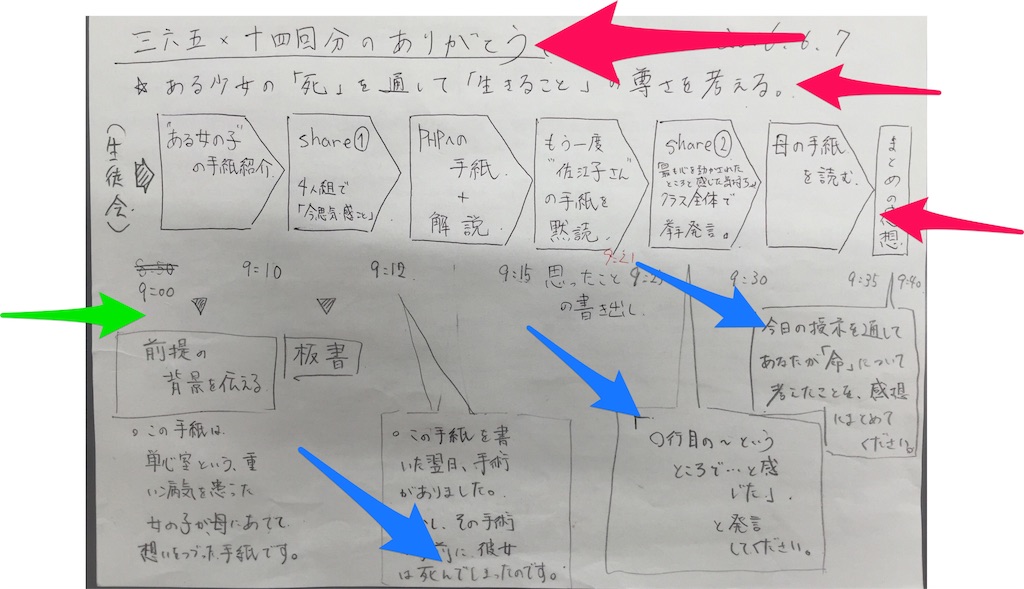 三六五×十四回分のありがとう
6.6.7
☆ ある少女の「死」を通して「生きること」の尊さを考える。
(生徒会)
"ある女の子"
の手紙紹介.
share①
4人組で
PHPへの
手紙.
+
解説
もう一度
"佐江子さん"
の手紙を
黙読.
share②
最も心を動かされた
ところと感じた気持ち
クラス全体で
挙手発言。
母の手紙
を読む.
まとめの感想
8:50
9:00
9:10
9:12
9:15
思ったこと
の書き出し.
9:21
9:30
9:35
9:40
前提の
背景を伝える
板書
。この手紙は
単心室という、重
い病気を患った
女の子が、母にあてて
想いをつづった手紙です。
。この手紙を書
いた翌日、手術
がありました。
その手術
前に、彼女
は死んでしまったのです。
「○行目の〜という
ところで…と感
じた」.
と発言
してください。
今日の授業を通して
あなたが「命」について
考えたことを、感想
にまとめて
ください。